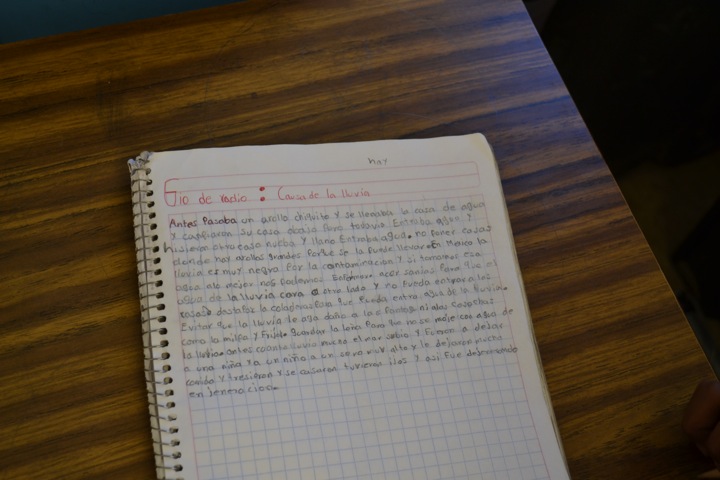 hay
Gio de radio : Causa de la lluvia
Antes Pasaba un arollo chiquito y se llenaba la casa de agua
y canviaron su casa abajo Pero todavia Entraba agua y
hisieron otra casa nueba y llano Entraba agua. no poner casas
donde hay arollos grandes Porque se la Puede llevar. En Mexico la
lluvia es muy negra Por la contaminacion y si tomamos esa
agua alo mejor nos podemos Enfermar. acer sanjas Para que el
agua de la lluvia cora a otro lado y no Pueda entrar a las
casas. destapar la coladeras Para que Pueda entrar agua de la lluvia.
Evitar que la lluvia le aga daño a las Plantas ni alas Cosechas
como la milpa y Frijol. guardar la leña Para que no se moje con agua de
la lluvia. antes cuanto llubio mucho el mar subio y Fueron a dejar
a una niña y a un niño a un sero muy alto y le dejaron mucha
comida y cresieron y se casaron tuvieron ijos y asi Fue
en jeneracion.